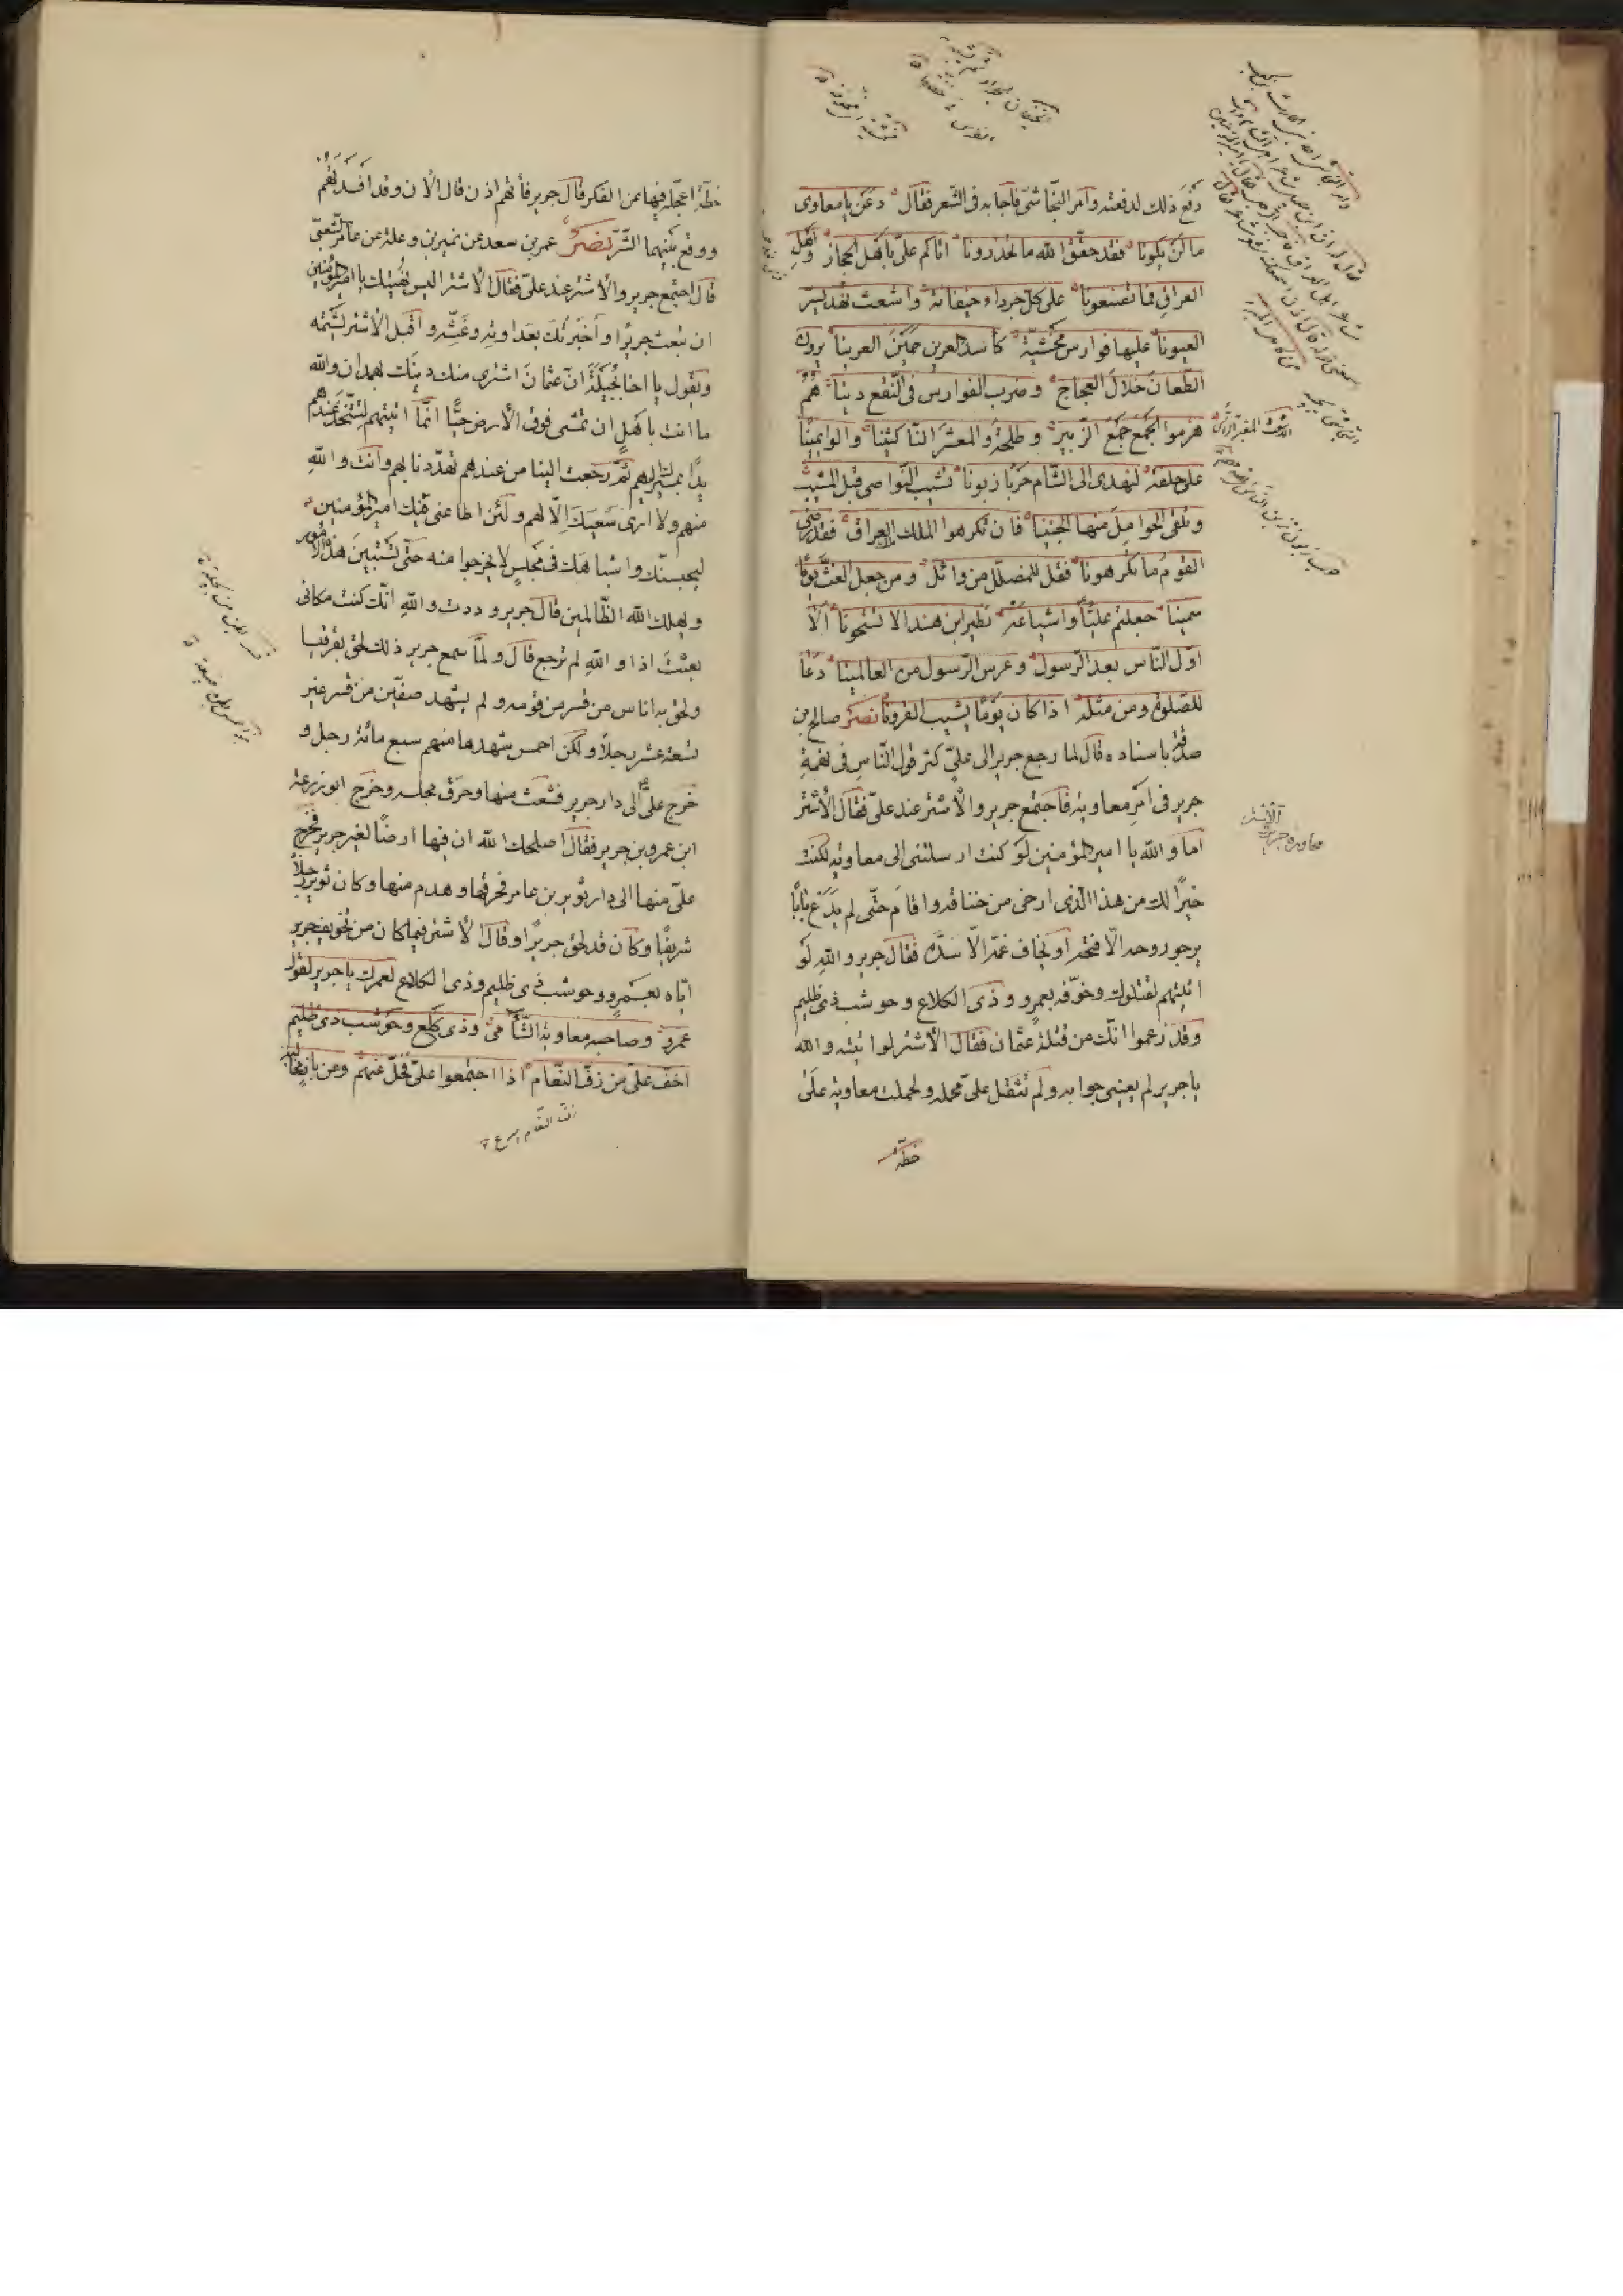 رفع ذلك لدفعته وامر النجاشى فاجابه فى الشعر فقال دعن يا معاوى
ما لن يكونا فقد حقق الله ما تحذرونا اتاكم على باهل الحجاز واهل
العراق فما تصنعونا على كل جرداء خيفانة واشعث نهد يسر
العيونا عليها فوارس مخشية كاسد العرين حمين العرينا يرون
الطعان خلال العجاج وضرب الفوارس فى النقع دينا هم
هزموا الجمع جمع الزبير وطلحة والمعشر الناكثينا وآلوا يمينا
على حلفة لنهدى الى الشام حربا زبونا تشيب النواصى قبل المشيب
وتلقى الحوامل منها الجنينا فان تكرهوا الملك ملك العراق فقد رضى
القوم ما تكرهونا فقل للمضلل من وائل ومن جعل الغث يوما
سمينا جعلتم عليا واشياعه نظير ابن هند الا تستحونا الا
اول الناس بعد الرسول وعرس الرسول من العالمينا دعا
للصلوة ومن مثله اذا كان يوما يشيب القرونا نصر صالح بن
صدقة باسناده قال لما رجع جرير الى على كثر قول الناس فى تهمة
جرير فى امر معاوية فاجتمع جرير والاشتر عند على فقال الاشتر
اما والله يا امير المؤمنين لو كنت ارسلتنى الى معاوية لكنت
خيرا لك من هذا الذى ارخى من خناقه واقام حتى لم يدع بابا
يرجو روحه الا فتحه او يخاف غمه الا سده فقال جرير والله لو
اتيتهم لقتلوك وخوفه بعمرو وذى الكلاع وحوشب ذى ظليم
وقد زعموا انك من قتلة عثمان فقال الاشتر لو اتيته والله
يا جرير لم يعينى جوابه ولم تثقل على محمله ولحملت معاوية على
خطة
النجاشى
خطة اعجله فيها عن الفكر قال جرير فأتهم اذن قال الان وقد افسدتهم
ووقع بينهم الشر نصر عمر بن سعد عن نمير بن وعلة عن عامر الشعبى
قال اجتمع جرير والاشتر عند على فقال الاشتر اليس نهيتك يا امير المؤمنين
ان تبعث جريرا واخبرتك بعداوته وغشه واقبل الاشتر يشتمه
ويقول يا اخا بجيلة ان عثمان اشترى منك دينك بهمدان والله
ما انت باهل ان تمشى فوق الارض حيا انما اتيتهم لتتخذ عندهم
يدا بمسيرك اليهم ثم رجعت الينا من عندهم تهددنا بهم وانت والله
منهم ولا ارى سعيك الا لهم ولئن اطاعنى فيك امير المؤمنين
ليحبسنك واشباهك فى مجلس لا يخرجوا منه حتى تستبين هذه الامور
ويهلك الله الظالمين قال جرير وددت والله انك كنت مكانى
بعثت اذا والله لم ترجع قال ولما سمع جرير ذلك لحق بقرقيسا
ولحق به اناس من قسر من قومه ولم يشهد صفين من قسر غير
تسعة عشر رجلا ولكن احمس شهدها منهم سبع مائة رجل و
خرج على الى دار جرير فشعث منها وحرق مجلسه وخرج ابو زرعة
ابن عمرو بن جرير فقال اصلحك الله ان فيها ارضا لغير جرير فخرج
على منها الى دار ثوير بن عامر فحرقها وهدم منها وكان ثوير رجلا
شريفا وكان قد لحق جريرا وقال الاشتر فيما كان من تخويف جرير
اياه بعمرو وحوشب ذى ظليم وذى الكلاع لعمرك يا جرير لقول
عمرو وصاحبه معاوية الشامى وذى كلع وحوشب ذى ظليم
اخف على من زف النعام اذا اجتمعوا على فخل عنهم وعن باز مخالبه
زف النعام